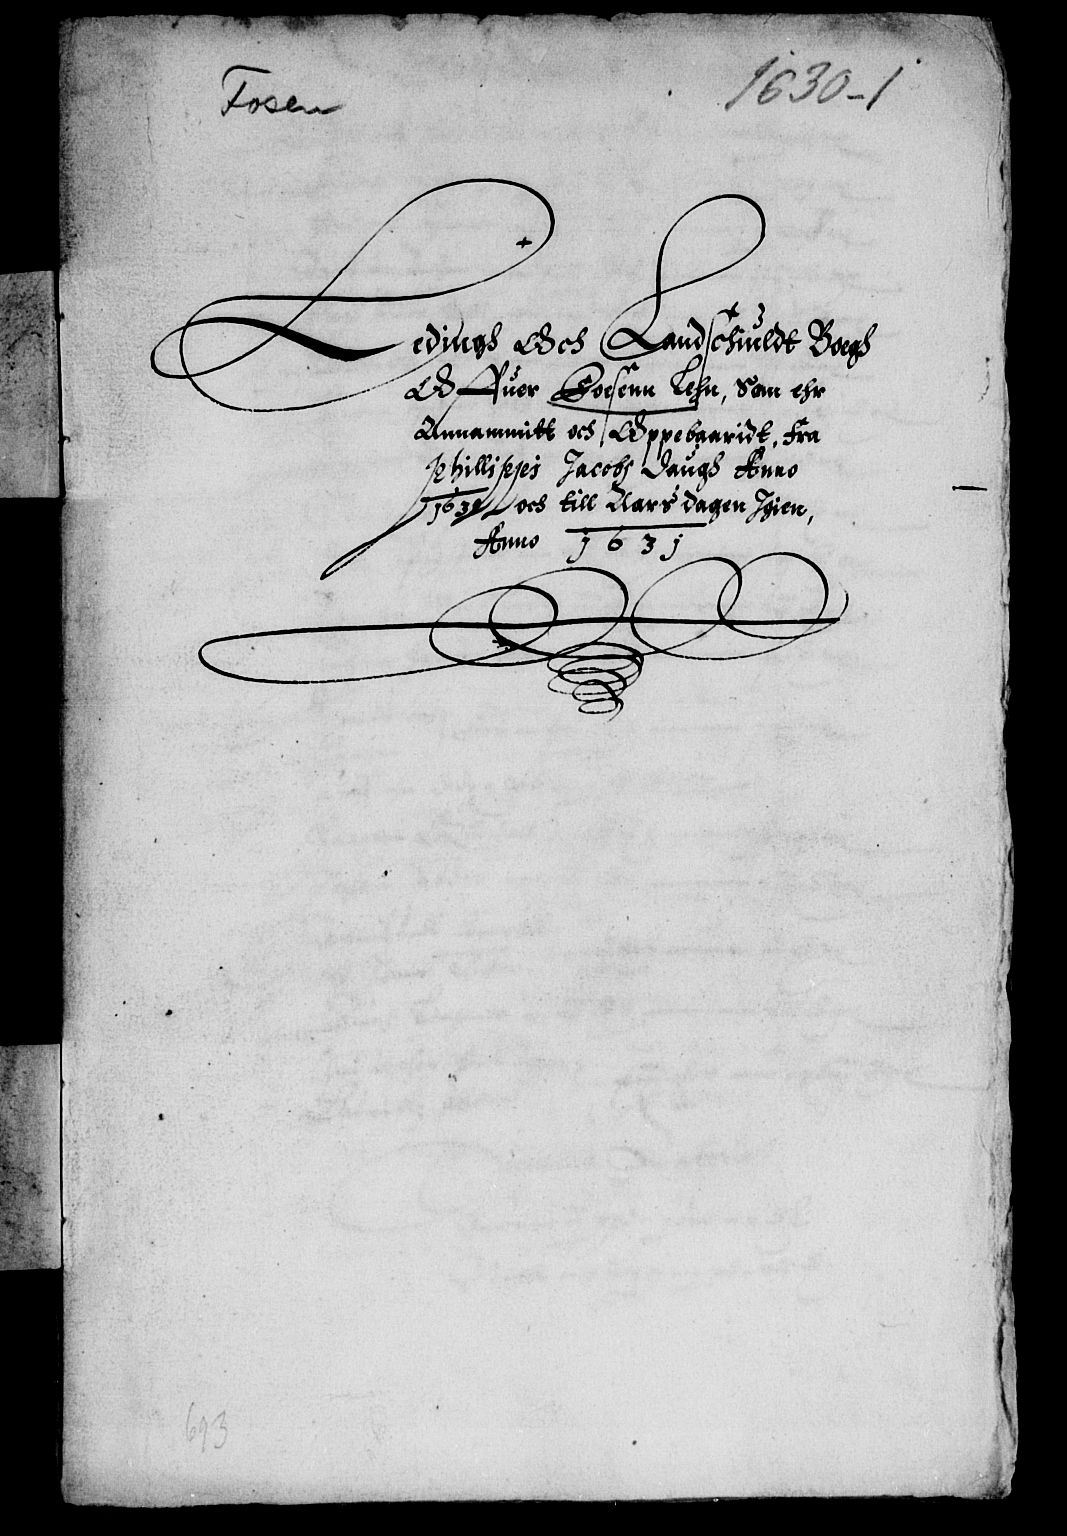 Fosen
1630-1
Ledingh Och Landschuldt Boegh
Offuer Foesenn Lehn, Som ehr
Annammitt och Oppebaaridt, Fra
Phillippi Jacobj Daugh Anno
1630 och till Aars dagen Igien,
Anno 1631
693